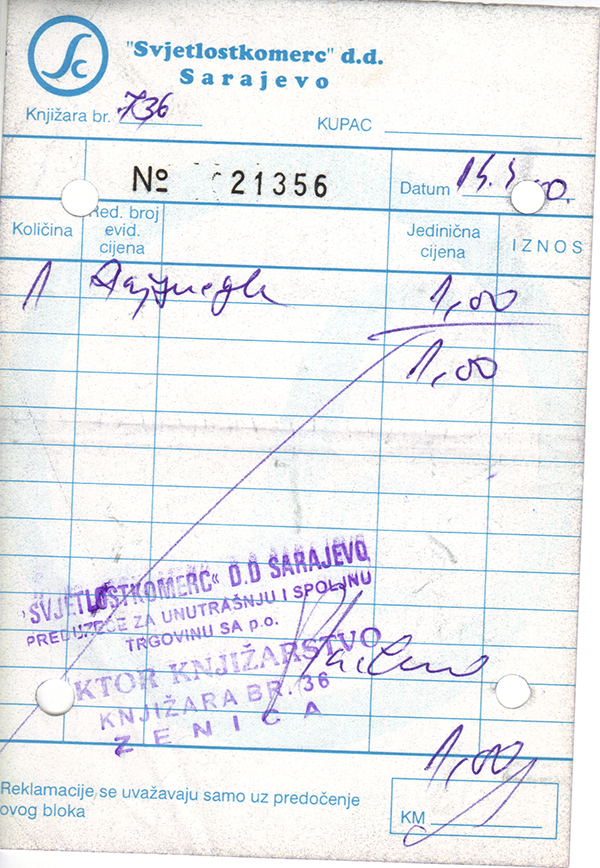 Sc
"Svjetlostkomerc" d.d.
Sarajevo
Knjižara br. 736
KUPAC
№ 21356
Datum
Količina
Red. broj evid. cijena
Jedinična cijena
IZNOS
1 1,00
1,00
„SVJETLOSTKOMERC“ D.D SARAJEVO
PREDUZEĆE ZA UNUTRAŠNJU I SPOLJNU
TRGOVINU SA p.o.
KTOR KNJIŽARSTVO
KNJIŽARA BR. 36
ZENICA
1,00
KM
Reklamacije se uvažavaju samo uz predočenje
ovog bloka